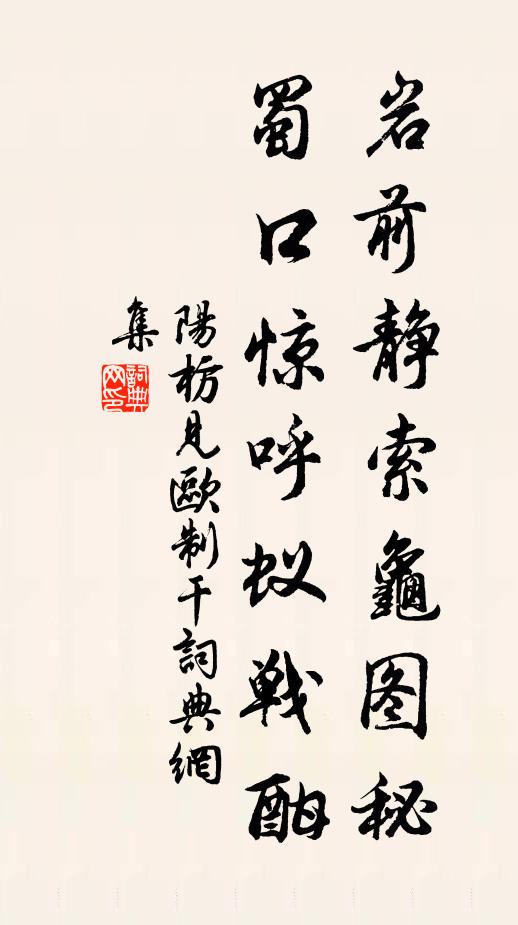 岩前静索龜图秘
蜀口惊呼蚁戦酣
陽枋見歐制干詞典網
集
詞典网印